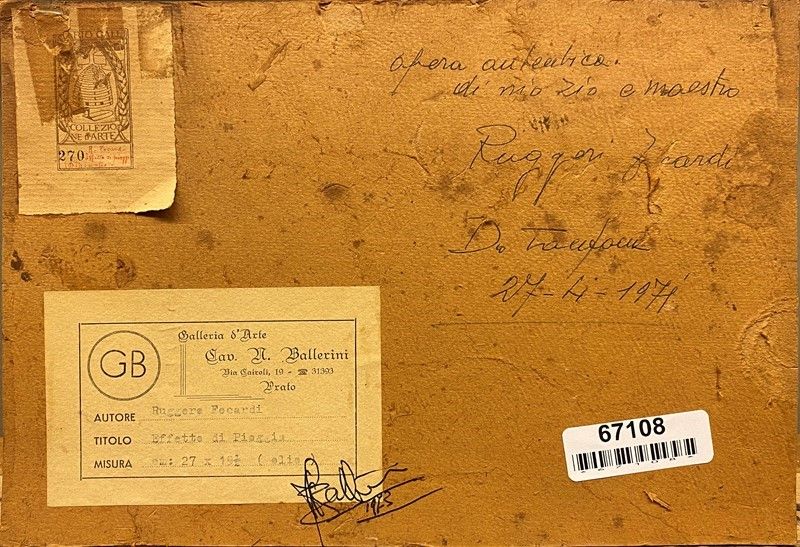 COLLEZIO
NE D'ARTE
270
opera autentica.
di mio zio e maestro
Ruggeri Focardi
27-4-1971
GB
Galleria d'Arte
Cav. N. Ballerini
Via Cairoli, 19 - ☎ 31393
Prato
AUTORE Ruggero Focardi
TITOLO Effetto di Pioggia
MISURA cm: 27 x 18½ ( olio )
1973
67108